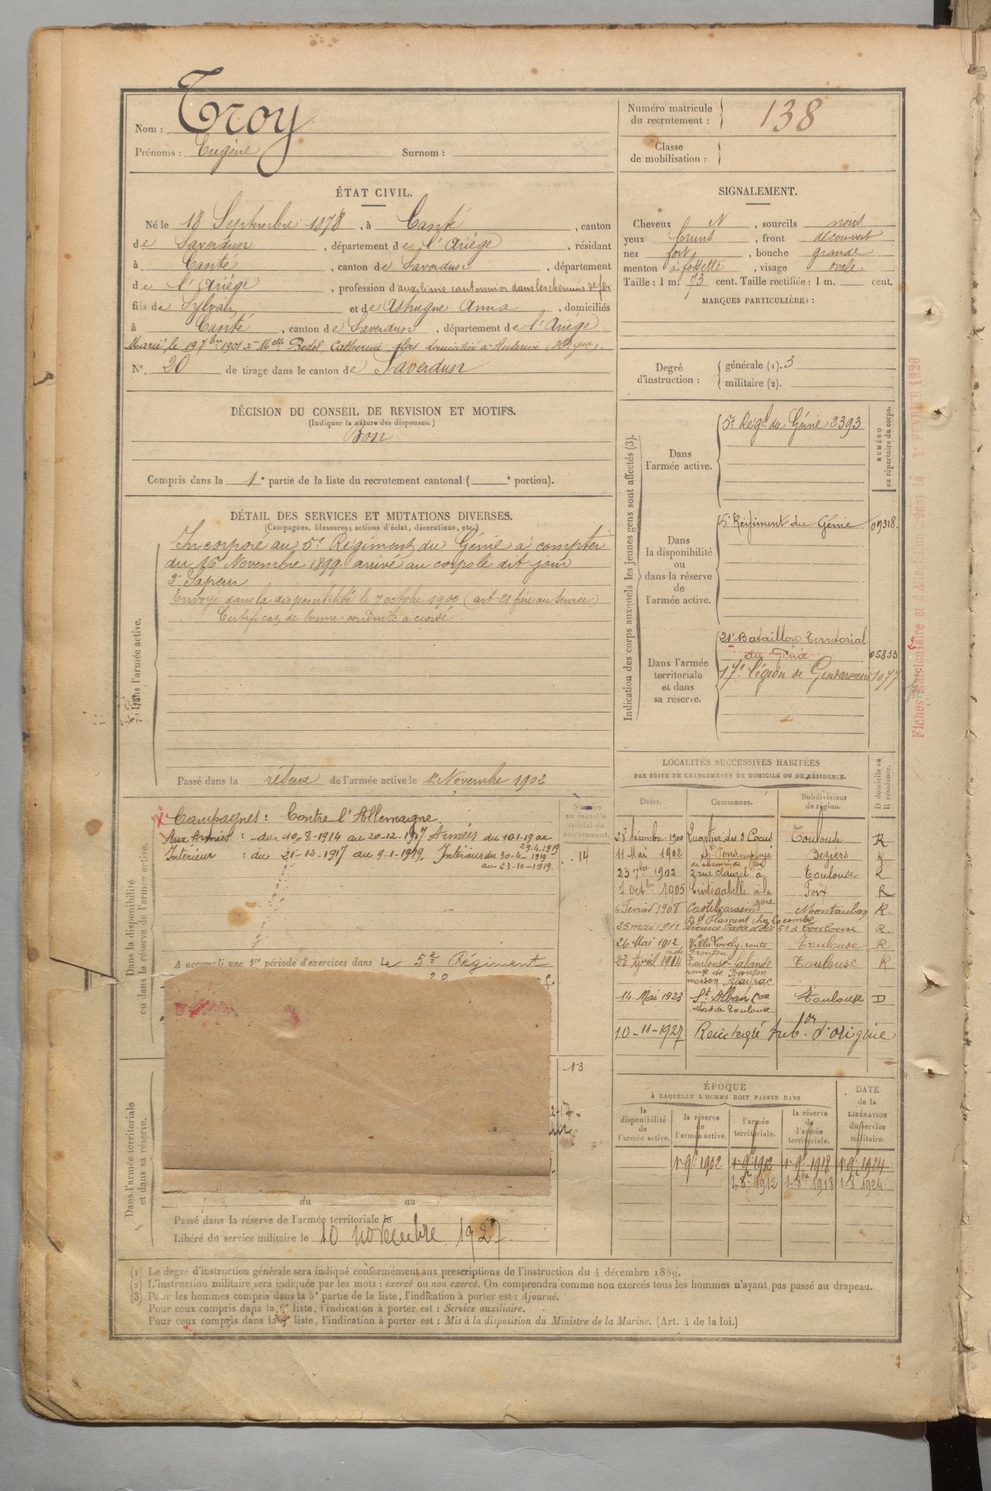 Nom : Troy
Prénoms : Eugène Surnom :
Numéro matricule du recrutement : 138
Classe de mobilisation :
ÉTAT CIVIL.
Né le 18 Septembre 1878, à Canté, canton
de Saverdun, département de l'Ariège, résidant
à Canté, canton de Saverdun, département
de l'Ariège, profession d'auxiliaire cantonnier dans les chemins de fer
fils de Sylvain et de Astrugue Anna, domiciliés
à Canté, canton de Saverdun, département de l'Ariège
Marié le 19 7bre 1901 à Melle Bedel Catherine domiciliée à
N° 20 de tirage dans le canton de Saverdun
SIGNALEMENT.
Cheveux N, sourcils noirs
yeux bruns, front découvert
nez fort, bouche grande
menton à fossette, visage ovale
Taille : 1 m. 73 cent. Taille rectifiée : 1 m. cent.
MARQUES PARTICULIÈRES :
Degré d'instruction : générale (1). 3
militaire (2).
DÉCISION DU CONSEIL DE REVISION ET MOTIFS.
(Indiquer la nature des dispenses.)
Bon
Compris dans la 1e partie de la liste du recrutement cantonal ( e portion).
DÉTAIL DES SERVICES ET MUTATIONS DIVERSES.
(Campagnes, blessures, actions d'éclat, décorations, etc.)
Dans l'armée active.
Incorporé au 5e Régiment du Génie à compter
du 16 Novembre 1899 arrivé au corps le dit jour
2e Sapeur
Envoyé dans la disponibilité le 7 octobre 1900
Certificat de bonne conduite accordé
Passé dans la réserve de l'armée active le 1er Novembre 1902
Indication des corps auxquels les jeunes gens sont affectés (3).
NUMÉRO au répertoire du corps.
Dans l'armée active.
5e Régt du Génie 2393
Dans la disponibilité ou dans la réserve de l'armée active.
5e Régiment du Génie 09318
Dans l'armée territoriale et dans sa réserve.
21e Bataillon Territorial
du Génie 05833
17e légion de Gendarmerie 1077
Fiches
Dans la disponibilité ou dans la réserve de l'armée active.
Campagnes : Contre l'Allemagne.
Aux Armées : du 10-8-1914 au 20-12-1917 Armées du 10-1-19 au
29-4-1919
Intérieur : du 21-12-1917 au 9-1-1919, Intérieur du 30-4-1919
au 23-10-1919.
14
A accompli une 1re période d'exercices dans le 5e Régiment
13
Dans l'armée territoriale et dans sa réserve.
du au
Passé dans la réserve de l'armée territoriale le
Libéré du service militaire le 10 novembre 1927
LOCALITÉS SUCCESSIVES HABITÉES
PAR SUITE DE CHANGEMENTS DE DOMICILE OU DE RÉSIDENCE.
Dates. Communes. Subdivisions de région. D domicile ou R résidence.
28 décembre 1900 Quartier des 3 Cocus Toulouse R
11 Mai 1902 St Pons employé de chemin de fer Béziers R
23 7bre 1902 Toulouse R
1 octbre 1905 Cintegabelle à la gare Foix R
6 Février 1908 Castelsarrasin Montauban R
25 mai 1911 Toulouse R
26 Mai 1912 Villa Lovely route Toulouse R
23 Avril 1914 Toulouse-Lalande Toulouse R
14 Mai 1923 St Alban Con Nord de Toulouse Toulouse D
10-11-1927 Réintégré sub. d'origine
ÉPOQUE
À LAQUELLE L'HOMME DOIT PASSER DANS
la disponibilité de l'armée active. la réserve de l'armée active. l'armée territoriale. la réserve de l'armée territoriale. DATE de la LIBÉRATION du service militaire.
1er 9bre 1902 1er 9bre 1912 1er 9bre 1918 1er 9bre 1924
1er 8bre 1912 1er 8bre 1918 1er 8bre 1924
(1) Le degré d'instruction générale sera indiqué conformément aux prescriptions de l'instruction du 4 décembre 1889.
(2) L'instruction militaire sera indiquée par les mots : exercé ou non exercé. On comprendra comme non exercés tous les hommes n'ayant pas passé au drapeau.
(3) Pour les hommes compris dans la 5e partie de la liste, l'indication à porter est : Ajourné.
Pour ceux compris dans la 6e liste, l'indication à porter est : Service auxiliaire.
Pour ceux compris dans la 7e liste, l'indication à porter est : Mis à la disposition du Ministre de la Marine. (Art. 4 de la loi.)